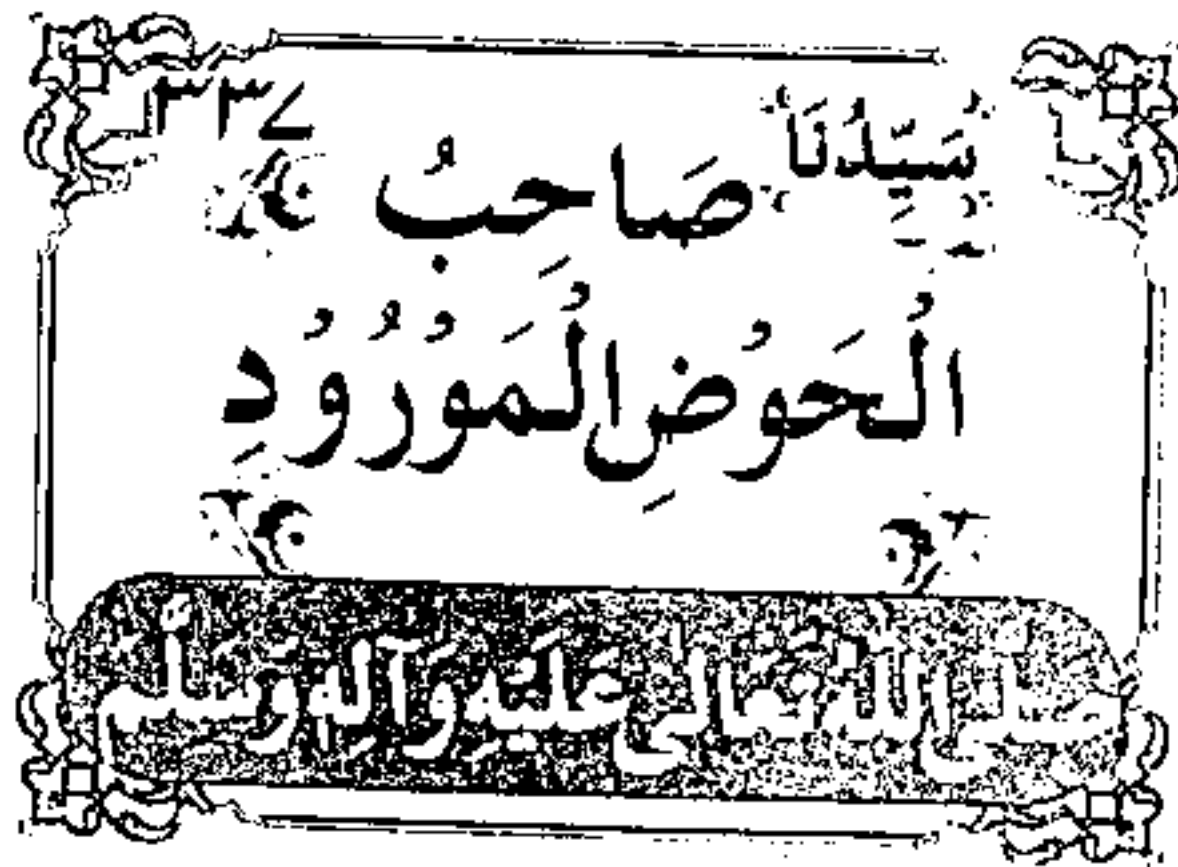 ۳۳۷
سَيِّدُنَا صَاحِبُ
الْحَوْضِ الْمَوْرُوْدِ
صلى الله تعالى عليه وآله وسلم